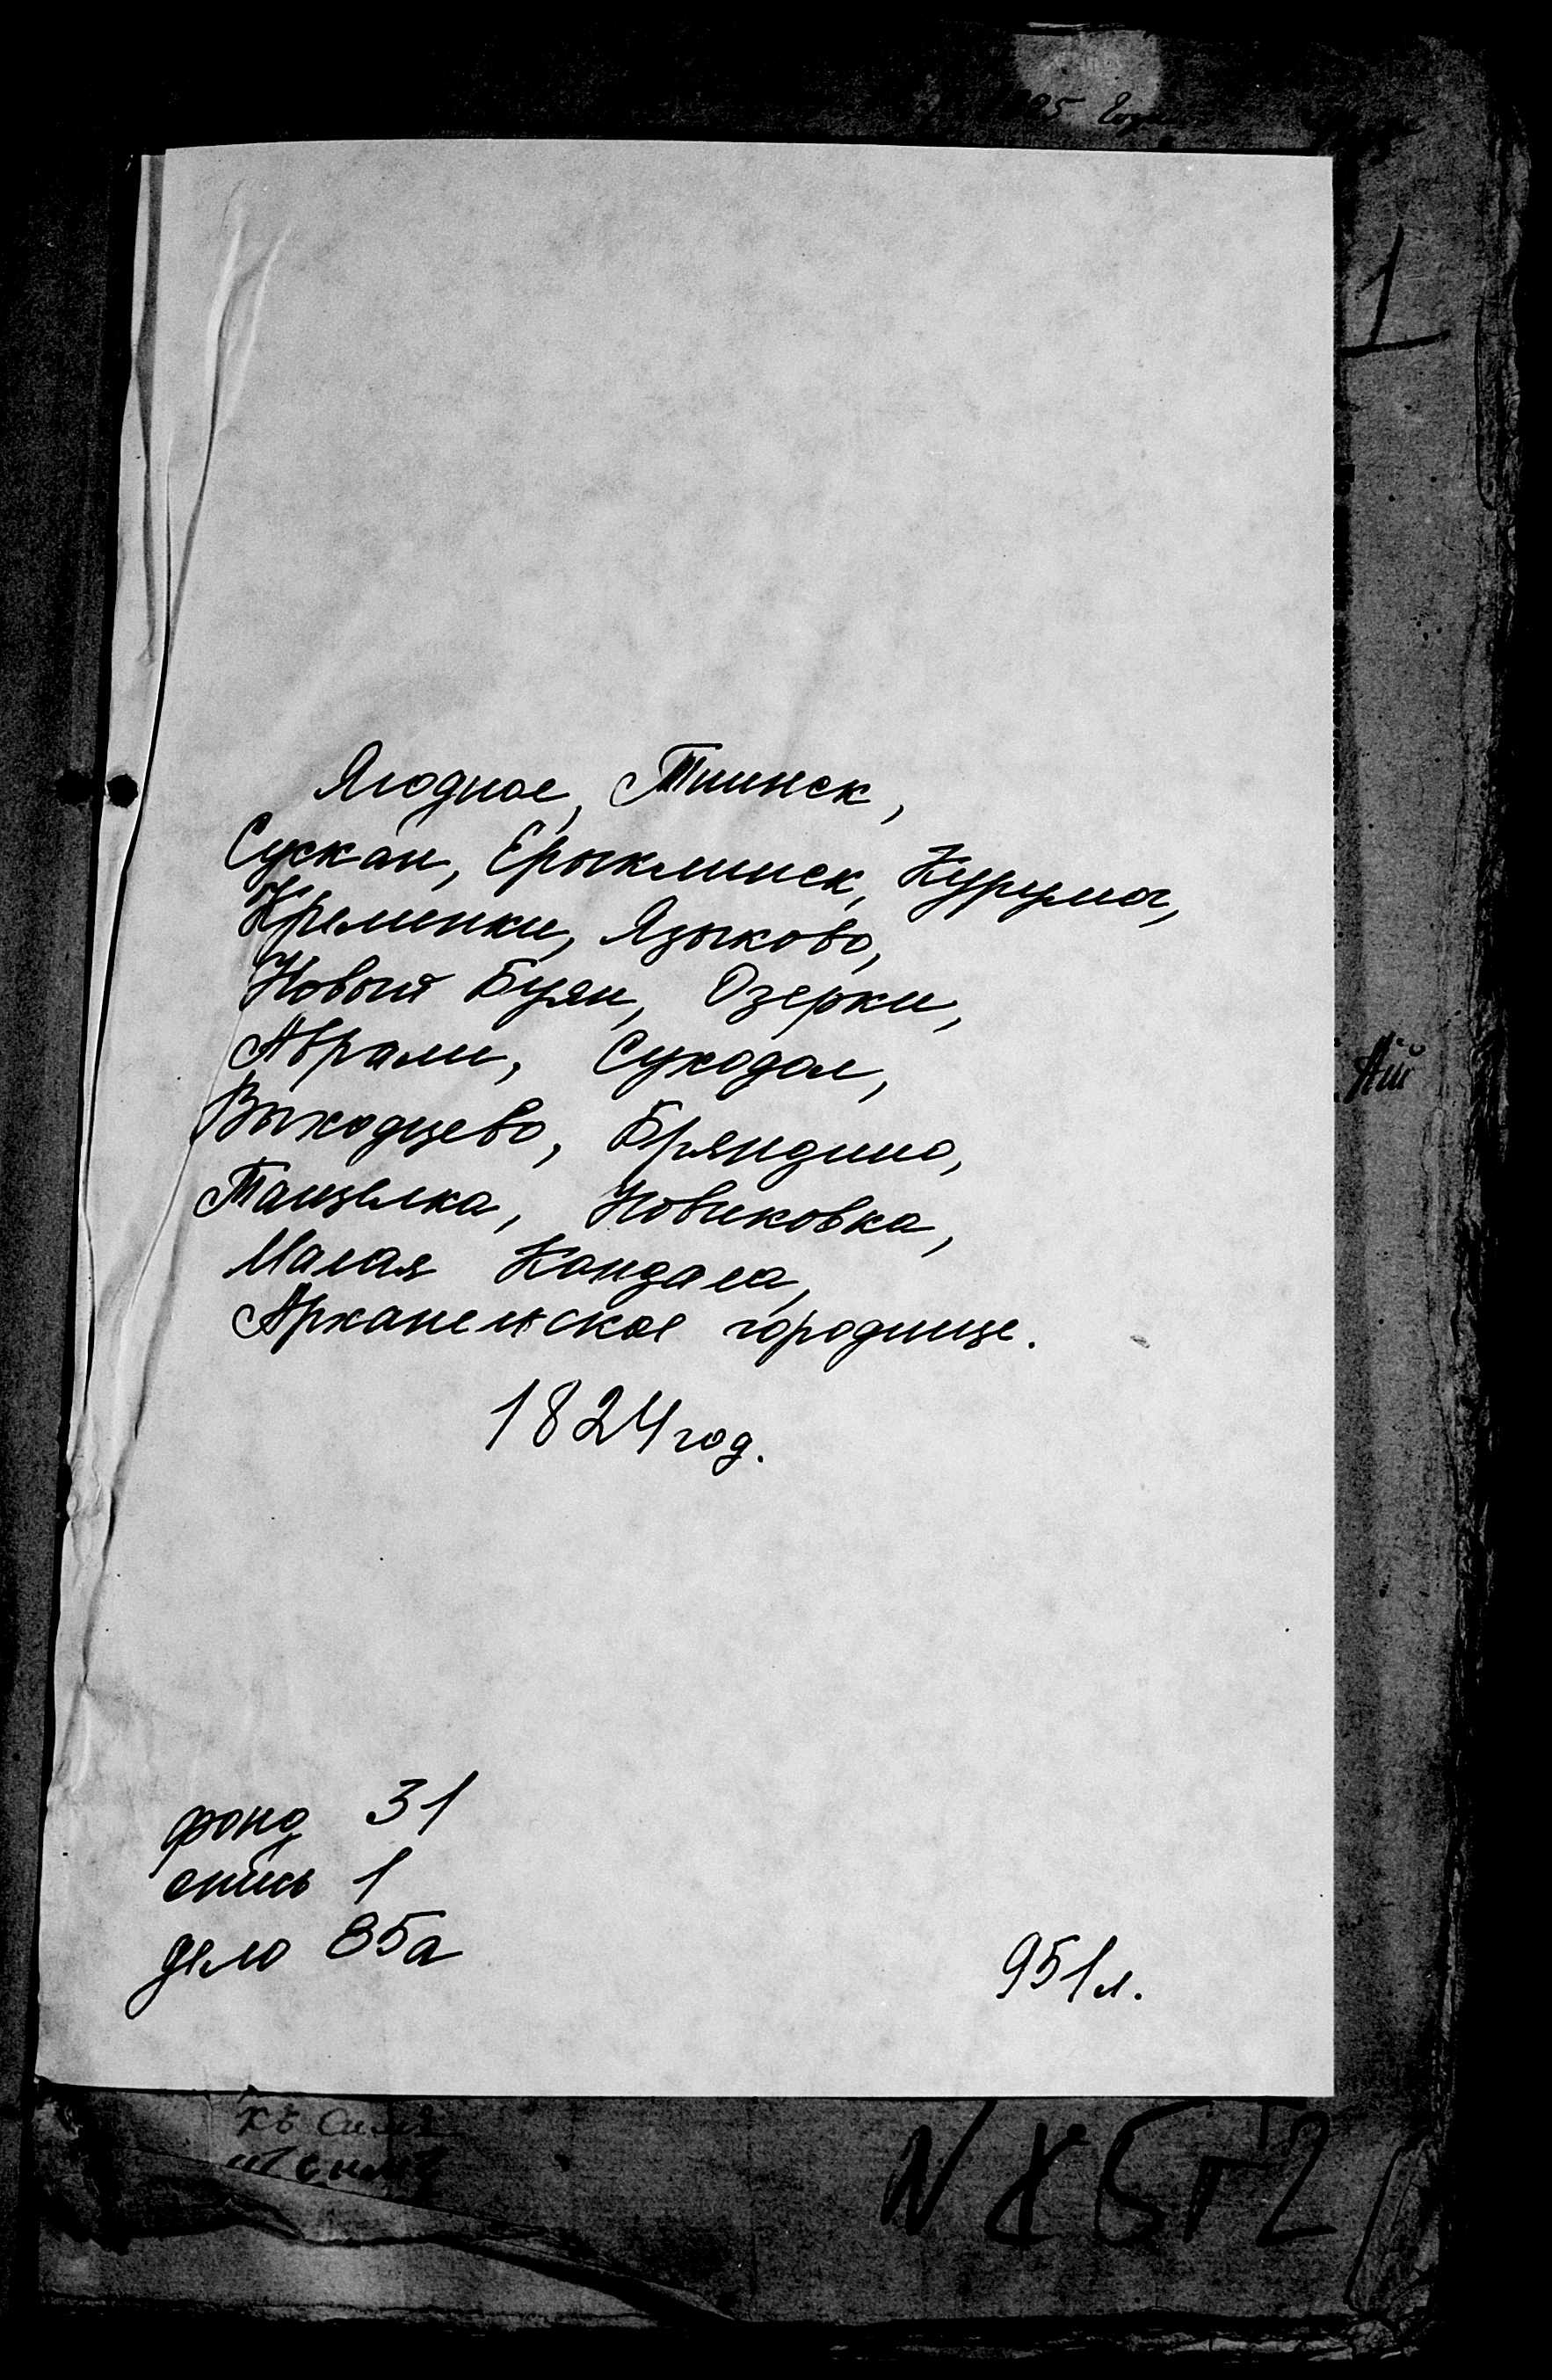 1
Ягодное, Тиинск,
Сускан, Ерыклинск, Курумоч,
Кременки, Языково,
Новый Буян, Озерки,
Аврали, Суходол,
Выходцево, Бряндино,
Танзелка, Новиковка,
Малая Кандала,
Архангельское городище.
1824 год.
фонд 31
опись 1
дело 85а
951 л.